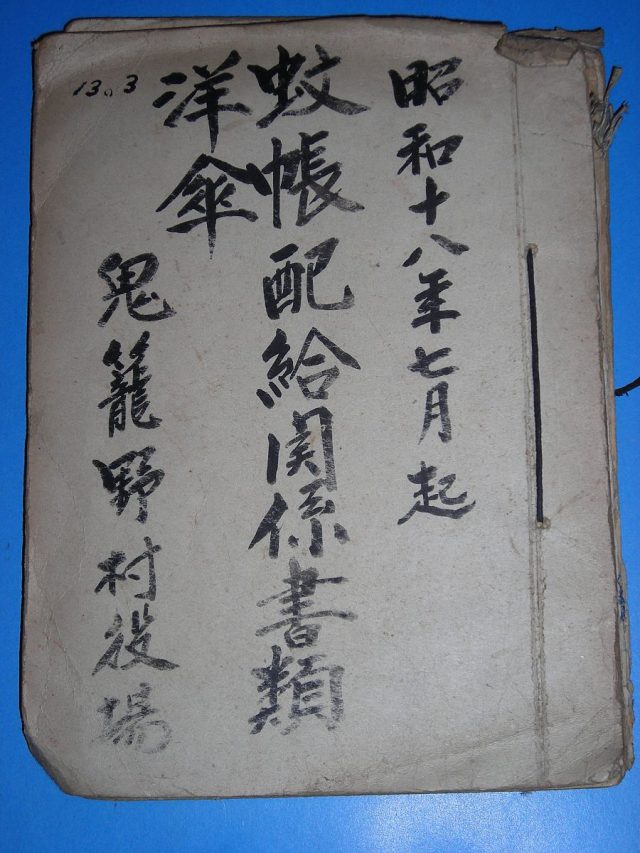 昭和十八年七月起
蚊帳配給関係書類
洋傘
鬼籠野村役場
13の3